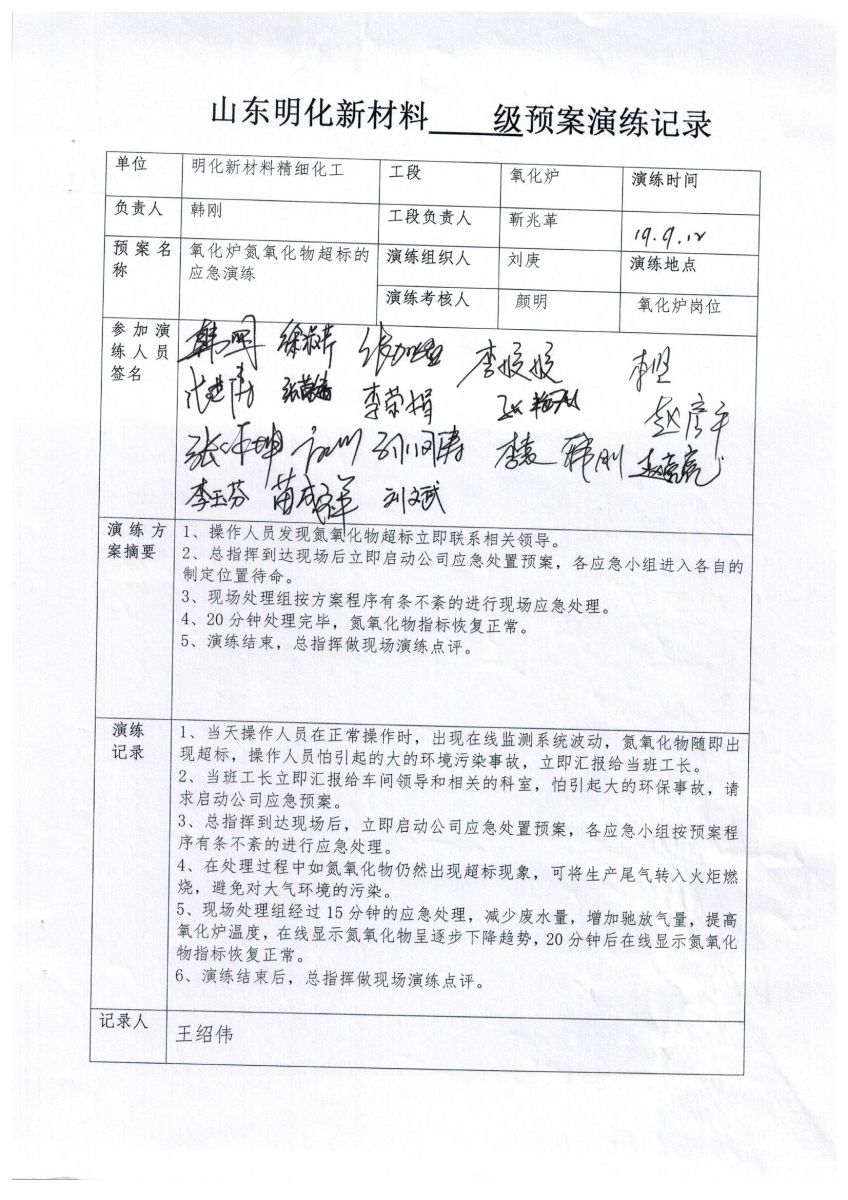 山东明化新材料____级预案演练记录
单位 明化新材料精细化工 工段 氧化炉 演练时间
负责人 韩刚 工段负责人 靳兆革 19.9.12
预案名称 氧化炉氮氧化物超标的应急演练 演练组织人 刘庚 演练地点
演练考核人 颜明 氧化炉岗位
参加演
练人员
签名
李媛媛
李荣娟
赵彦平
韩刚
李玉芬 刘文武
演练方
案摘要
1、操作人员发现氮氧化物超标立即联系相关领导。
2、总指挥到达现场后立即启动公司应急处置预案，各应急小组进入各自的
制定位置待命。
3、现场处理组按方案程序有条不紊的进行现场应急处理。
4、20分钟处理完毕，氮氧化物指标恢复正常。
5、演练结束，总指挥做现场演练点评。
演练
记录
1、当天操作人员在正常操作时，出现在线监测系统波动，氮氧化物随即出
现超标，操作人员怕引起的大的环境污染事故，立即汇报给当班工长。
2、当班工长立即汇报给车间领导和相关的科室，怕引起大的环保事故，请
求启动公司应急预案。
3、总指挥到达现场后，立即启动公司应急处置预案，各应急小组按预案程
序有条不紊的进行应急处理。
4、在处理过程中如氮氧化物仍然出现超标现象，可将生产尾气转入火炬燃
烧，避免对大气环境的污染。
5、现场处理组经过15分钟的应急处理，减少废水量，增加驰放气量，提高
氧化炉温度，在线显示氮氧化物呈逐步下降趋势，20分钟后在线显示氮氧化
物指标恢复正常。
6、演练结束后，总指挥做现场演练点评。
记录人 王绍伟